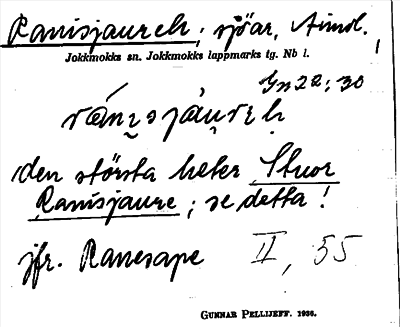 Ranisjaureh; sjöar, Aimol.,
Jokkmokks sn. Jokkmokks lappmarks tg. Nb l.
Gn 22:30
rání̯sjáu̯reh̥
den största heter Stuor
Ranisjaure; se detta!
jfr. Ranesape II, 55
GUNNAR PELLIJEFF. 1936.